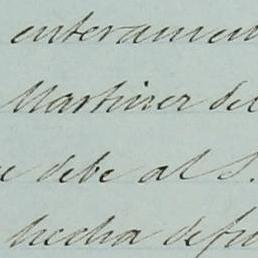 enteramen
Martinez del
e debe al S.
hecha defu